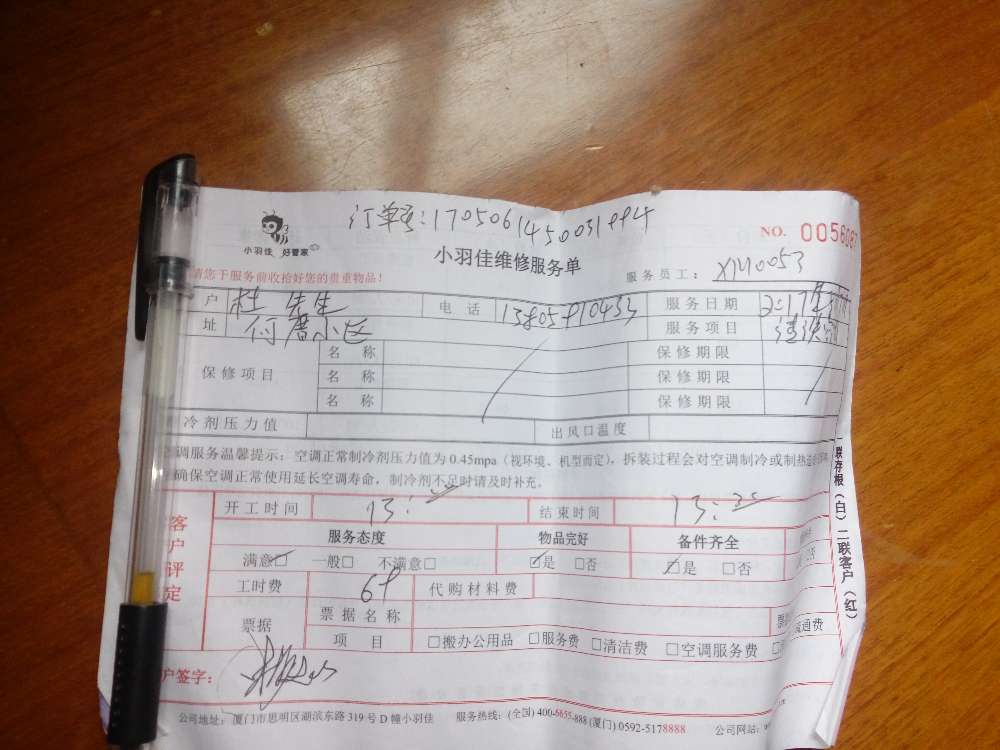 订单号:1705061450031994
NO. 0056087
小羽佳 好管家
小羽佳维修服务单
服务员工: XM0053
请您于服务前收拾好您的贵重物品!
户 杜先生 电话 服务日期
址 何厝小区 服务项目
保修项目 名称 保修期限
名称 保修期限
名称 保修期限
冷剂压力值 出风口温度
调服务温馨提示: 空调正常制冷剂压力值为 0.45mpa (视环境、机型而定), 拆装过程会对空调制冷或制热
确保空调正常使用延长空调寿命, 制冷剂不足时请及时补充。
开工时间 13: 结束时间 13:
客户评定
服务态度 物品完好 备件齐全
满意☑ 一般□ 不满意□ ☑是 □否 ☑是 □否
工时费 代购材料费
票据 票据名称
项目 □搬办公用品 □服务费 □清洁费 □空调服务费
流通费
户签字:
公司地址: 厦门市思明区湖滨东路 319 号 D 幢小羽佳 服务热线: (全国) 400-6655-888 (厦门) 0592-5178888 公司网站:
联存根(白) 二联客户(红)